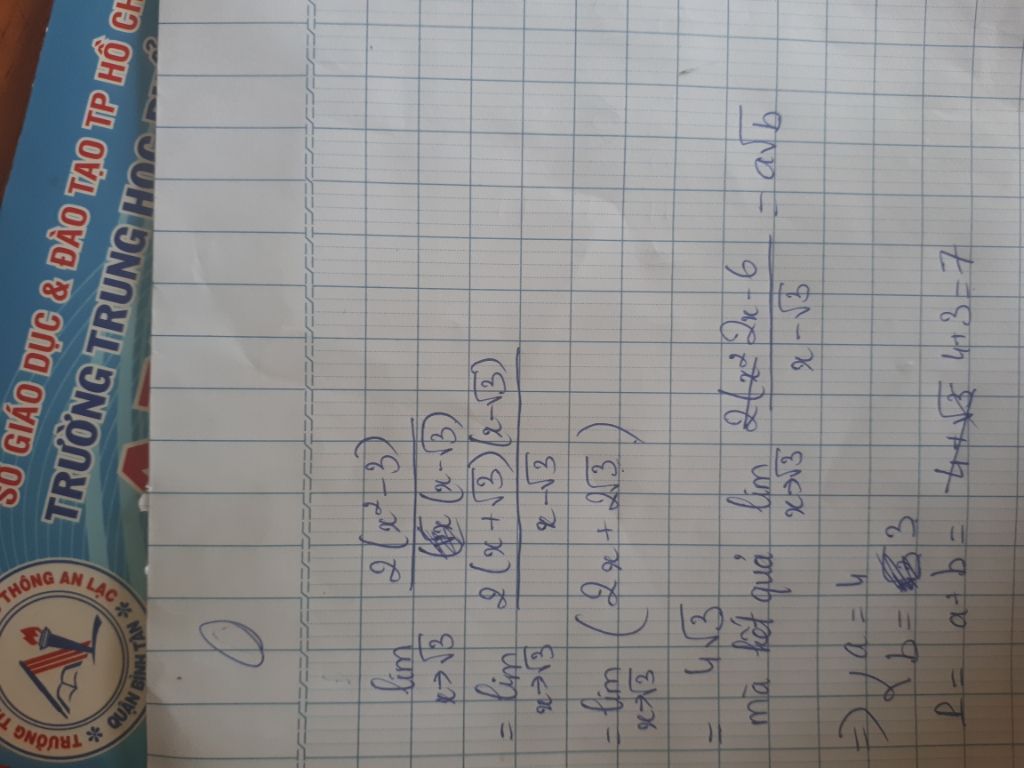 SỞ GIÁO DỤC & ĐÀO TẠO TP HỒ CH
TRƯỜNG TRUNG HỌC
THÔNG AN LẠC
* QUẬN BÌNH TÂN *
TRƯỜNG T
lim x->√3 2(x² - 3) / (x - √3)
= lim x->√3 2(x + √3)(x - √3) / x - √3
= lim x->√3 (2x + 2√3)
= 4√3
mà kết quả lim x->√3 2(x² 2x - 6 / x - √3 = a√b
=> { a = 4
b = 3
P = a + b = 4+√3 4+3 = 7